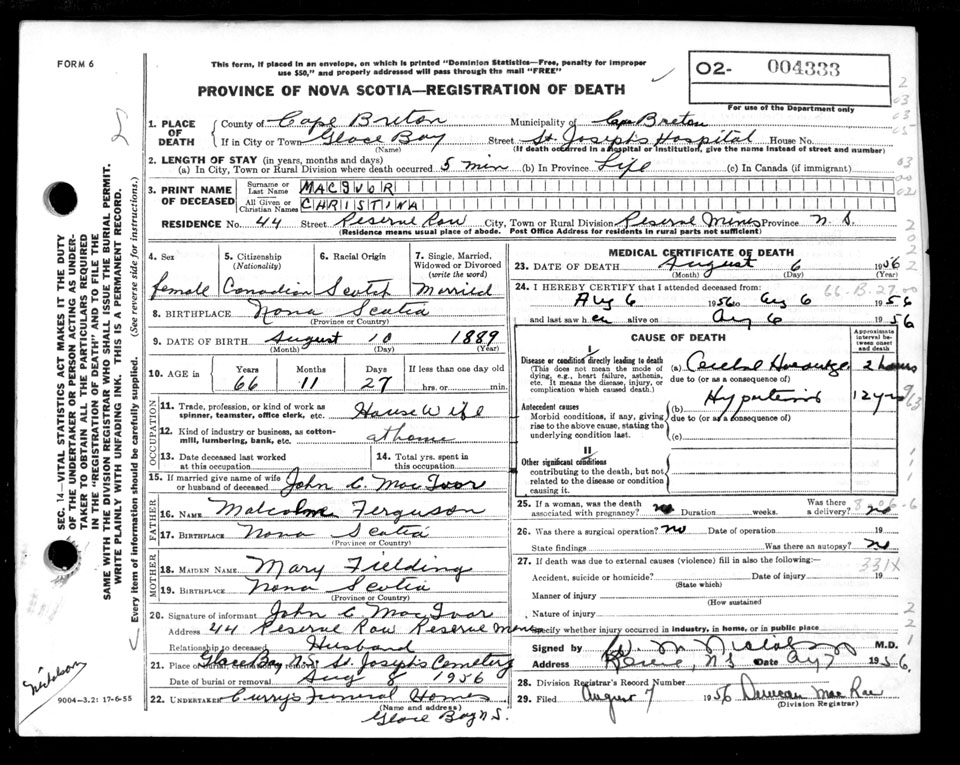 FORM 6
This form, if placed in an envelope, on which is printed "Dominion Statistics—Free, penalty for improper
use $50," and properly addressed will pass through the mail "FREE"
02- 004333
For use of the Department only
PROVINCE OF NOVA SCOTIA—REGISTRATION OF DEATH
1. PLACE OF DEATH County of Cape Breton Municipality of Cape Breton
If in City or Town Glace Bay Street St. Joseph's Hospital House No.
(Name) (If death occurred in a hospital or institution, give the name instead of street and number)
2. LENGTH OF STAY (in years, months and days)
(a) In City, Town or Rural Division where death occurred 5 min (b) In Province Life (c) In Canada (if immigrant)
3. PRINT NAME OF DECEASED Surname or Last Name MACIVOR
All Given or Christian Names CHRISTINA
RESIDENCE No. 44 Street Reserve Row City, Town or Rural Division Reserve Mines Province N.S.
(Residence means usual place of abode. Post Office Address for residents in rural parts not sufficient)
4. Sex 5. Citizenship (Nationality) 6. Racial Origin 7. Single, Married, Widowed or Divorced (write the word)
female Canadian Scotch Married
8. BIRTHPLACE Nova Scotia
(Province or Country)
9. DATE OF BIRTH August 10 1889
(Month) (Day) (Year)
10. AGE in Years Months Days If less than one day old
66 11 27 hrs. or min.
OCCUPATION
11. Trade, profession, or kind of work as spinner, teamster, office clerk, etc. House Wife
12. Kind of industry or business, as cotton-mill, lumbering, bank, etc. at home
13. Date deceased last worked at this occupation 14. Total yrs. spent in this occupation
15. If married give name of wife or husband of deceased John C. MacIvor
FATHER
16. NAME Malcolm Ferguson
17. BIRTHPLACE Nova Scotia
(Province or Country)
MOTHER
18. MAIDEN NAME Mary Fielding
19. BIRTHPLACE Nova Scotia
(Province or Country)
20. Signature of informant John C MacIvor
Address 44 Reserve Row Reserve Mines
Relationship to deceased Husband
21. Place of burial, cremation or removal Glace Bay N.S. St. Joseph's Cemetery
Date of burial or removal Aug 8 1956
22. UNDERTAKER Currys Funeral Homes
(Name and address)
Glace Bay N.S.
MEDICAL CERTIFICATE OF DEATH
23. DATE OF DEATH August 6 1956
(Month) (Day) (Year)
24. I HEREBY CERTIFY that I attended deceased from:
66-B-27-00
Aug 6 1956 to Aug 6 1956
and last saw h er alive on Aug 6 1956
CAUSE OF DEATH
Approximate interval between onset and death
I
Disease or condition directly leading to death
(This does not mean the mode of dying, e.g., heart failure, asthenia, etc. It means the disease, injury, or complication which caused death.)
(a) Cerebral Hemorrhage 2 hours
due to (or as a consequence of)
Antecedent causes
Morbid conditions, if any, giving rise to the above cause, stating the underlying condition last.
(b) Hypertension 12 yrs
due to (or as a consequence of)
(c)
II
Other significant conditions
contributing to the death, but not related to the disease or condition causing it.
25. If a woman, was the death associated with pregnancy? no Duration weeks. Was there a delivery? no
26. Was there a surgical operation? no Date of operation 19
State findings Was there an autopsy? no
27. If death was due to external causes (violence) fill in also the following:—
331X
Accident, suicide or homicide? Date of injury 19
(State which)
Manner of injury
(How sustained)
Nature of injury
Specify whether injury occurred in industry, in home, or in public place
Signed by W. M. Nicholson M.D.
Address Reserve, N.S Date Aug 7 1956
28. Division Registrar's Record Number
29. Filed August 7 1956 Duncan MacRae
(Division Registrar)
SEC. 14—VITAL STATISTICS ACT MAKES IT THE DUTY
OF THE UNDERTAKER OR PERSON ACTING AS UNDER-
TAKER TO OBTAIN ALL THE PARTICULARS REQUIRED
IN THE "REGISTRATION OF DEATH" AND TO FILE THE
SAME WITH THE DIVISION REGISTRAR WHO SHALL ISSUE THE BURIAL PERMIT.
WRITE PLAINLY WITH UNFADING INK. THIS IS A PERMANENT RECORD.
Every item of information should be carefully supplied. (See reverse side for instructions.)
Nicholson
9004-3.21 17-6-55